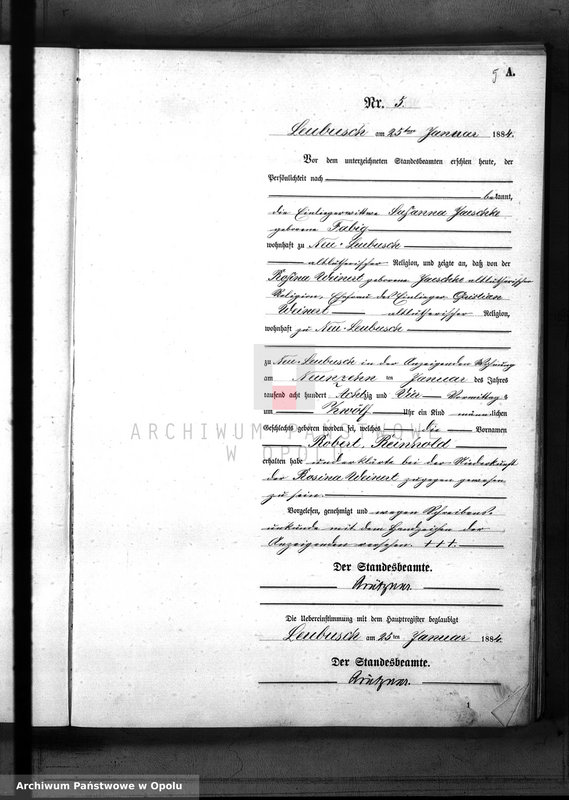 5 A.
Nr. 5.
Leubusch am 25ten Januar 1884.
Vor dem unterzeichneten Standesbeamten erschien heute, der
Persönlichkeit nach
bekannt,
die Einliegerwittwe Susanna Jaeschke
geborene Fabig
wohnhaft zu Neu-Leubusch
altlutherischer Religion, und zeigte an, daß von der
Rosina Weinert geborene Jaeschke altlutherischer
Religion, Ehefrau des Einlieger Christian
Weinert altlutherischer Religion,
wohnhaft zu Neu-Leubusch
zu Neu-Leubusch in der Anzeigenden Wohnung
am Neunzehn ten Januar des Jahres
tausend acht hundert Achtzig und Vier Vormittags
um Zwölf Uhr ein Kind männlichen
Geschlechts geboren worden sei, welches die Vornamen
Robert, Reinhold
erhalten habe und erklärte bei der Niederkunft
der Rosina Weinert zugegen gewesen
zu sein.
Vorgelesen, genehmigt und wegen Schreibens-
unkunde mit dem Handzeichen der
Anzeigenden versehen. +++.
Der Standesbeamte.
Die Uebereinstimmung mit dem Hauptregister beglaubigt
Leubusch am 25ten Januar 1884.
Der Standesbeamte.
1
ARCHIWUM PAŃSTWOWE
W OPOLU
Archiwum Państwowe w Opolu